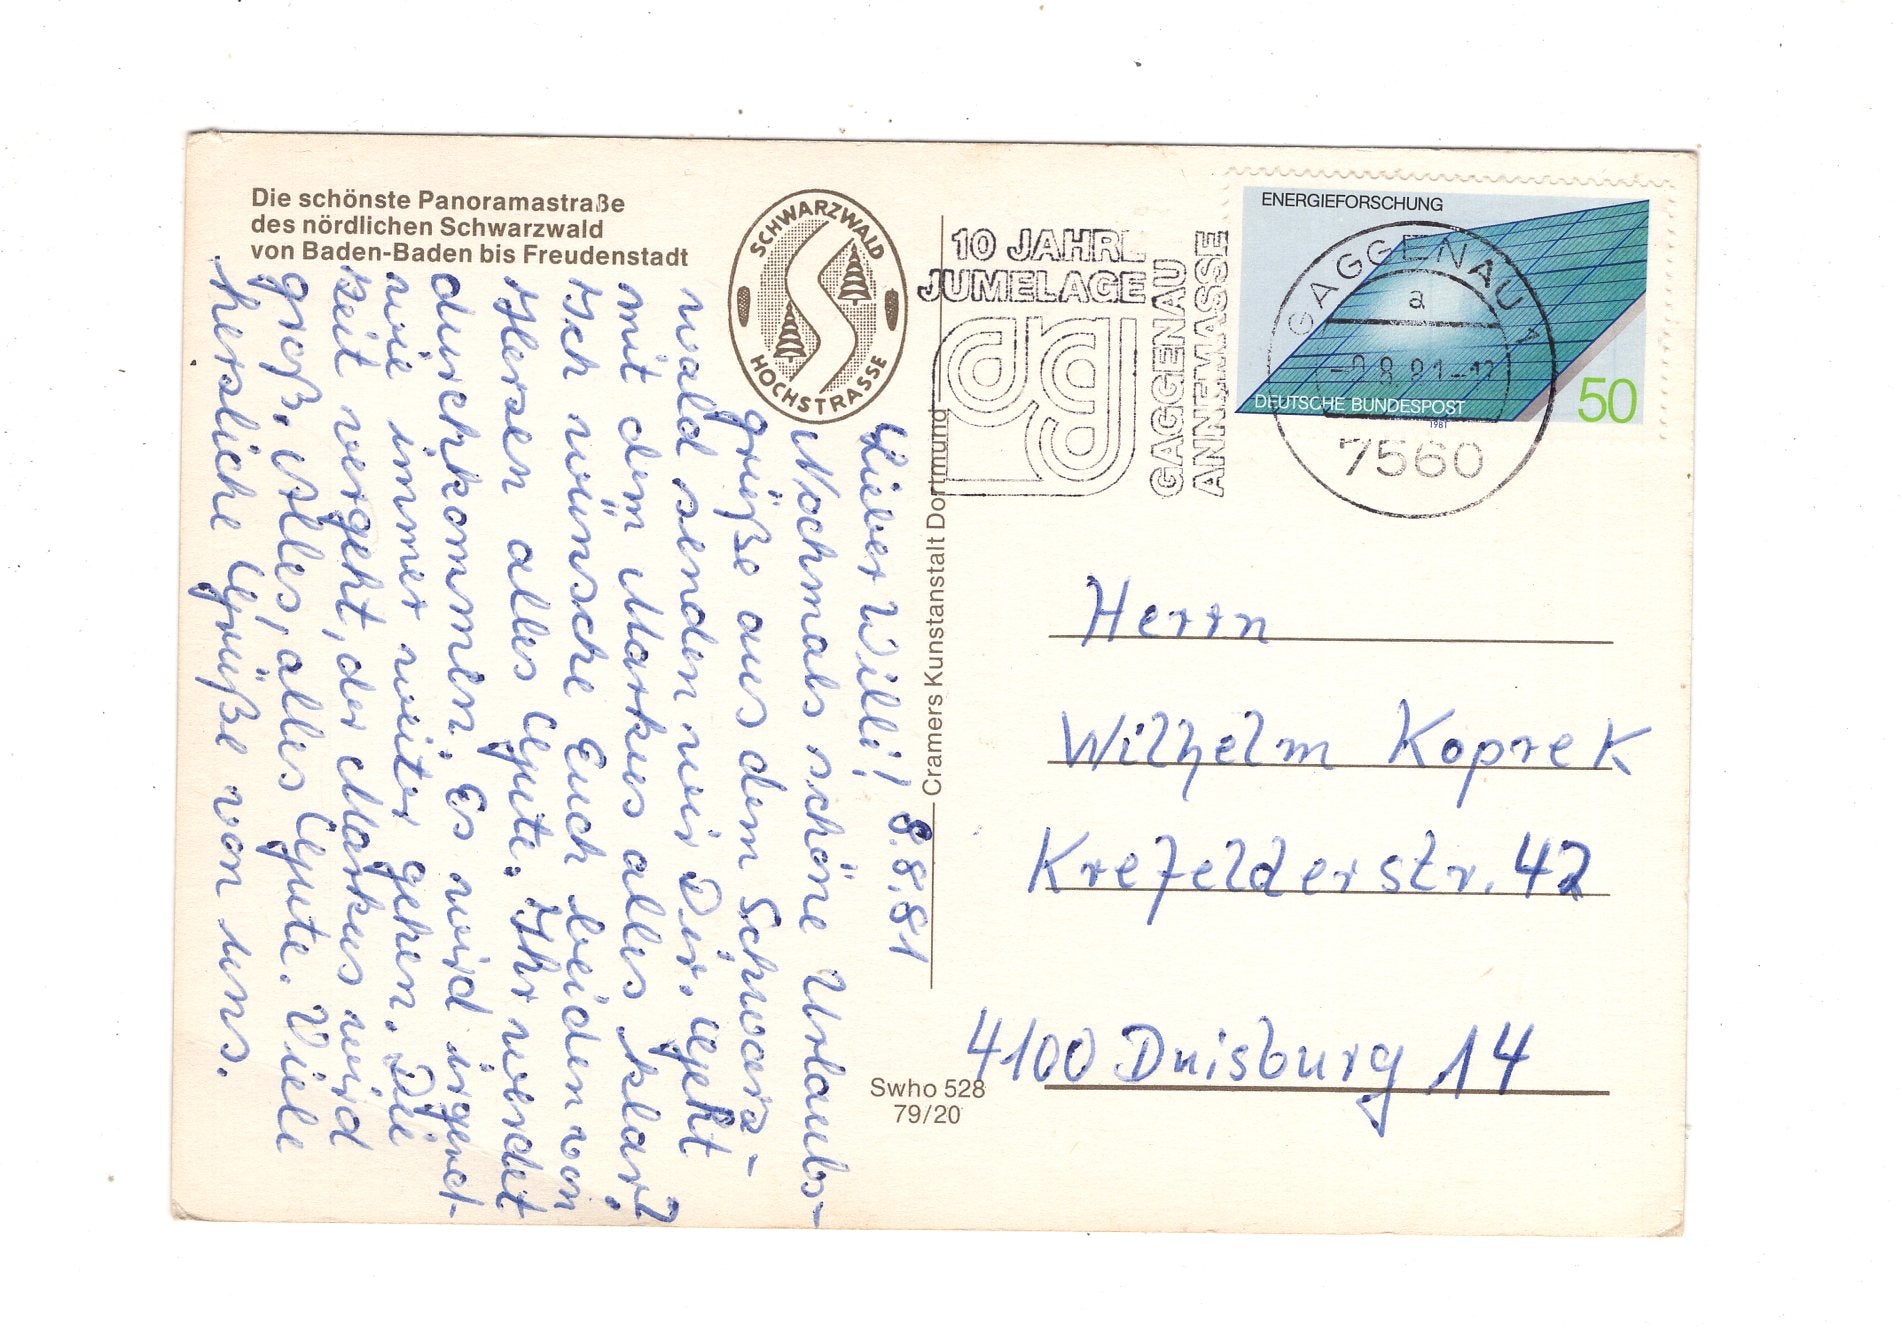 Die schönste Panoramastraße
des nördlichen Schwarzwald
von Baden-Baden bis Freudenstadt
SCHWARZWALD
HOCHSTRASSE
10 JAHRE
JUMELAGE
GAGGENAU
ANNEMASSE
ENERGIEFORSCHUNG
DEUTSCHE BUNDESPOST
1981
50
GAGGENAU 1
a
7560
8.8.81
Lieber Willi!
Nochmals schöne Urlaubs-
grüße aus dem Schwarz-
wald senden wir Dir. Geht
mit dem Markus alles klar?
Ich wünsche Euch beiden von
Herzen alles Gute. Ihr werdet
durchkommen. Es wird irgend-
wie immer weiter gehen. Die
Zeit vergeht, der Markus wird
groß. Alles, alles Gute. Viele
herzliche Grüße von uns.
Cramers Kunstanstalt Dortmund
Swho 528
79/20
Herrn
Wilhelm Koprek
Krefelderstr. 42
4100 Duisburg 14